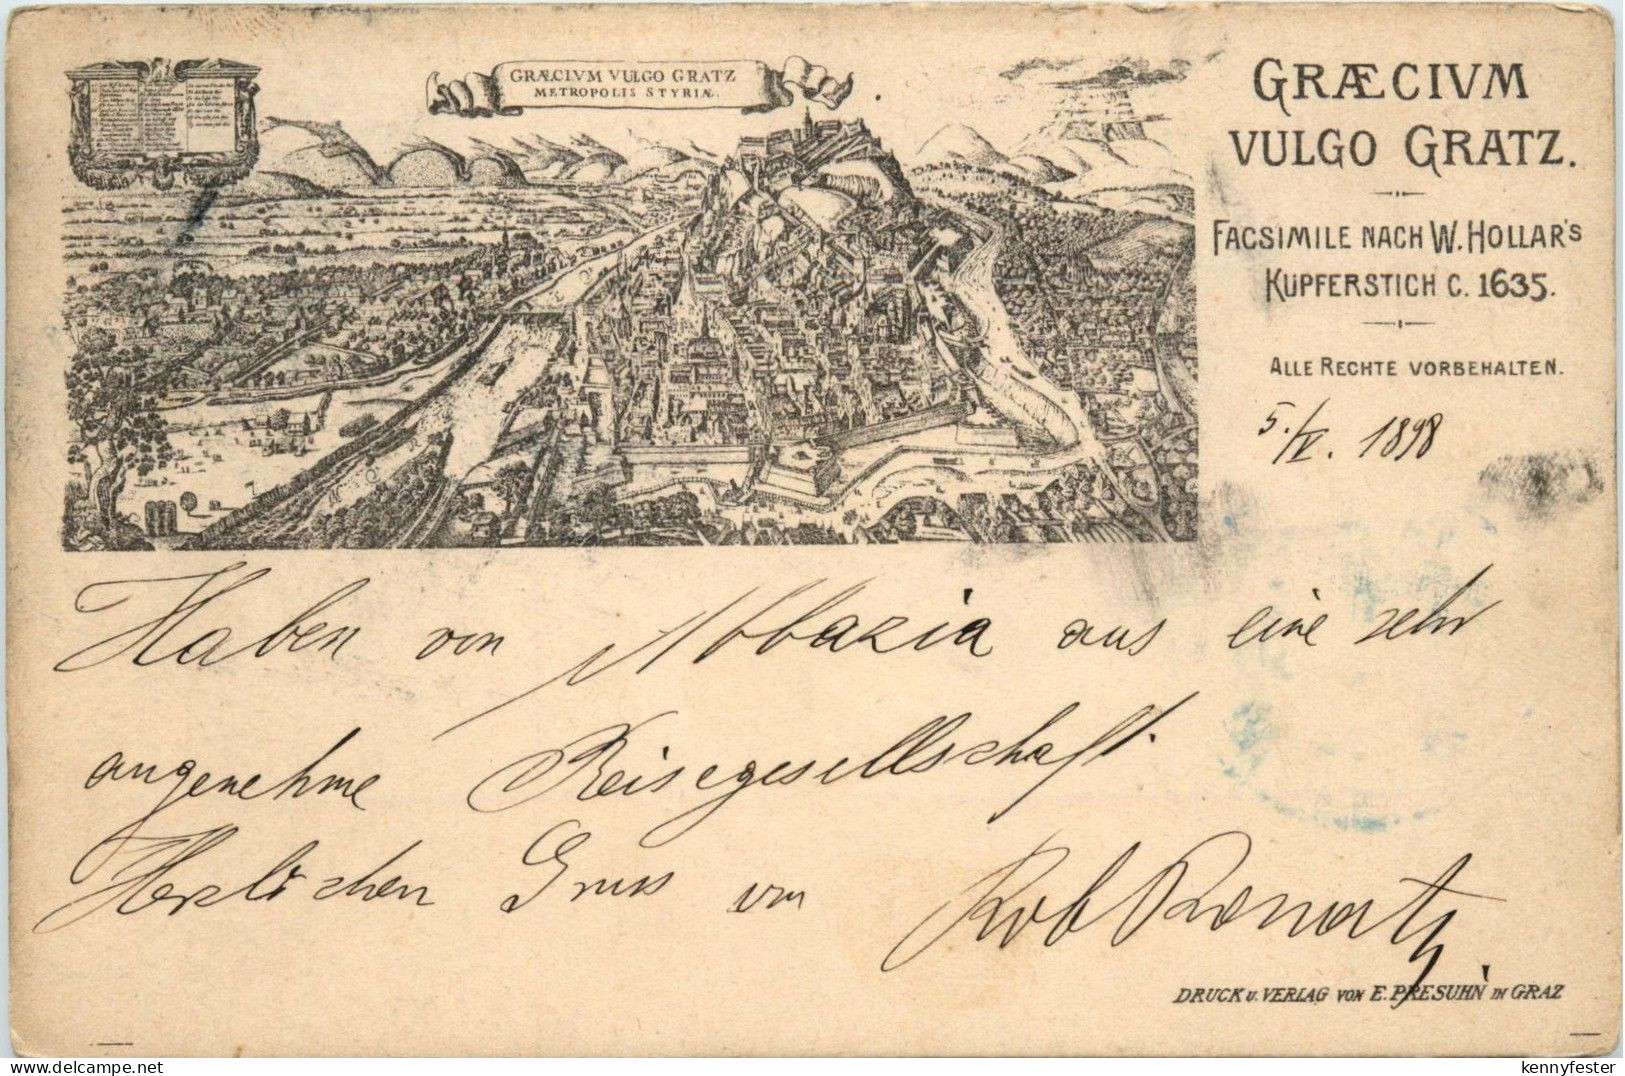 GRÆCIVM VULGO GRATZ
METROPOLIS STYRIÆ.
GRÆCIVM
VULGO GRATZ.
FACSIMILE NACH W. HOLLAR'S
KUPFERSTICH C. 1635.
ALLE RECHTE VORBEHALTEN.
5./V. 1898
Haben von Abbazia aus eine sehr
angenehme Reisegesellschaft.
Herzlichen Gruss von Rob
DRUCK U. VERLAG VON E. PRESUHN IN GRAZ
delcampe.net
kennyfester